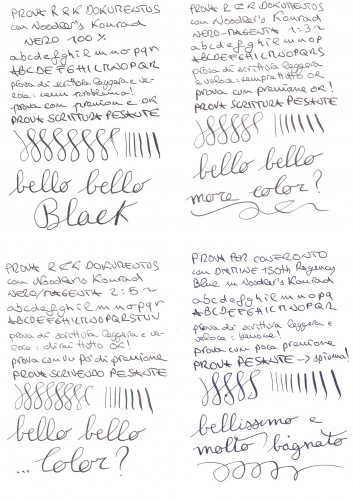 PROVA R & K DOKUMENTUS
con Noodler's Konrad
NERO 100 %
abcdefghilmnopqr
ABCDEFGHILMNOPQR
prova di scrittura leggera e ve-
loce: nessun problema!
prova con pressione e OK
PROVA SCRITTURA PESANTE
bello bello
Black
PROVA R & K DOKUMENTUS
con Noodler's Konrad
NERO-MAGENTA 1:3~
abcdefghilmnopqrs
ABCDEFGHILMNOPQRS
prova di scrittura leggera
e veloce: sempre tutto OK
prova con pressione OK!
PROVA SCRITTURA PESANTE
bello bello
more color?
PROVA R & K DOKUMENTUS
con Noodler's Konrad
NERO/MAGENTA 2:5~
abcdefghilmnopqr
ABCDEFGHILMNOPQRSTUV
prova di scrittura leggera e ve-
loce: direi tutto OK!
prova con un po' di pressione
PROVA SCRIVENDO PESANTE
bello bello
... color?
PROVA PER CONFRONTO
con DIAMINE 150th Regency
Blue in Noodler's Konrad
abcdefghilmnopq
ABCDEFGHILMNOPQR
prova di scrittura leggera e
veloce: benone!
prova con poca pressione
PROVA PESANTE → spiuma!
bellissimo e
molto bagnato